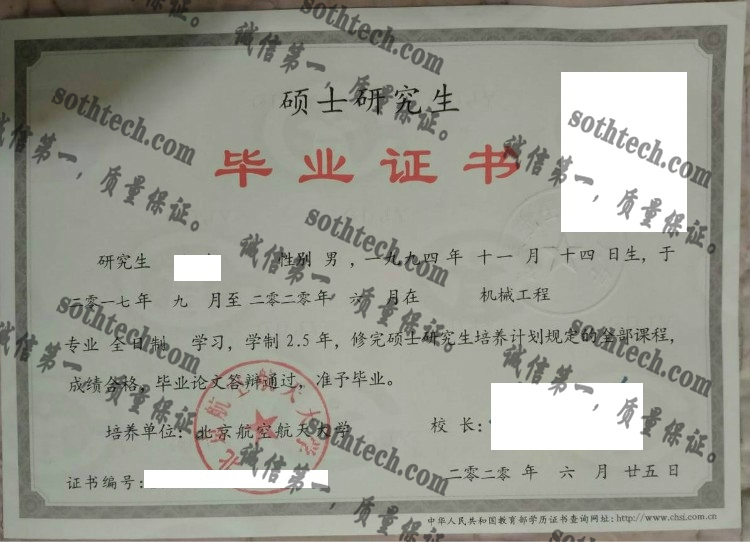 硕士研究生
毕业证书
研究生 性别 男，一九九四年 十一 月二十四日生，于
二零一七年 九 月至二〇二〇年 六 月在 机械工程
专业 全日制 学习，学制 2.5 年，修完硕士研究生培养计划规定的全部课程，
成绩合格，毕业论文答辩通过，准予毕业。
培养单位：北京航空航天大学
校 长：
证书编号：
二〇二〇 年 六 月 廿五日
中华人民共和国教育部学历证书查询网址：http://www.chsi.com.cn
北京航空航天大学
sothtech.com
诚信第一，质量保证。
sothtech.com
诚信第一，质量保证。
sothtech.com
诚信第一，质量保证。
sothtech.com
诚信第一，质量保证。
sothtech.com
诚信第一，质量保证。
sothtech.com
诚信第一，质量保证。
sothtech.com
诚信第一，质量保证。